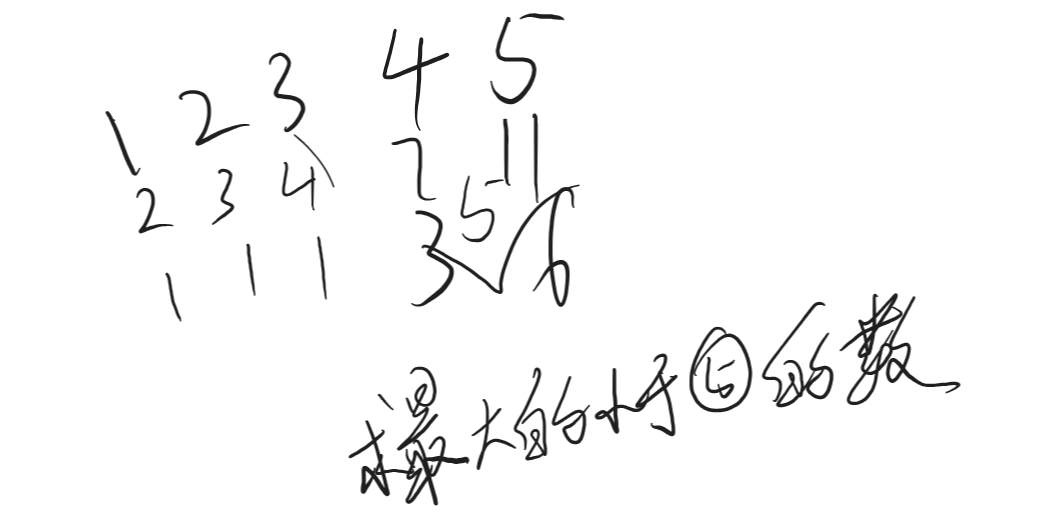 1 2 3 4 5
2 3 4 7 11
1 1 1 3 5 6
求最大的小于5的数